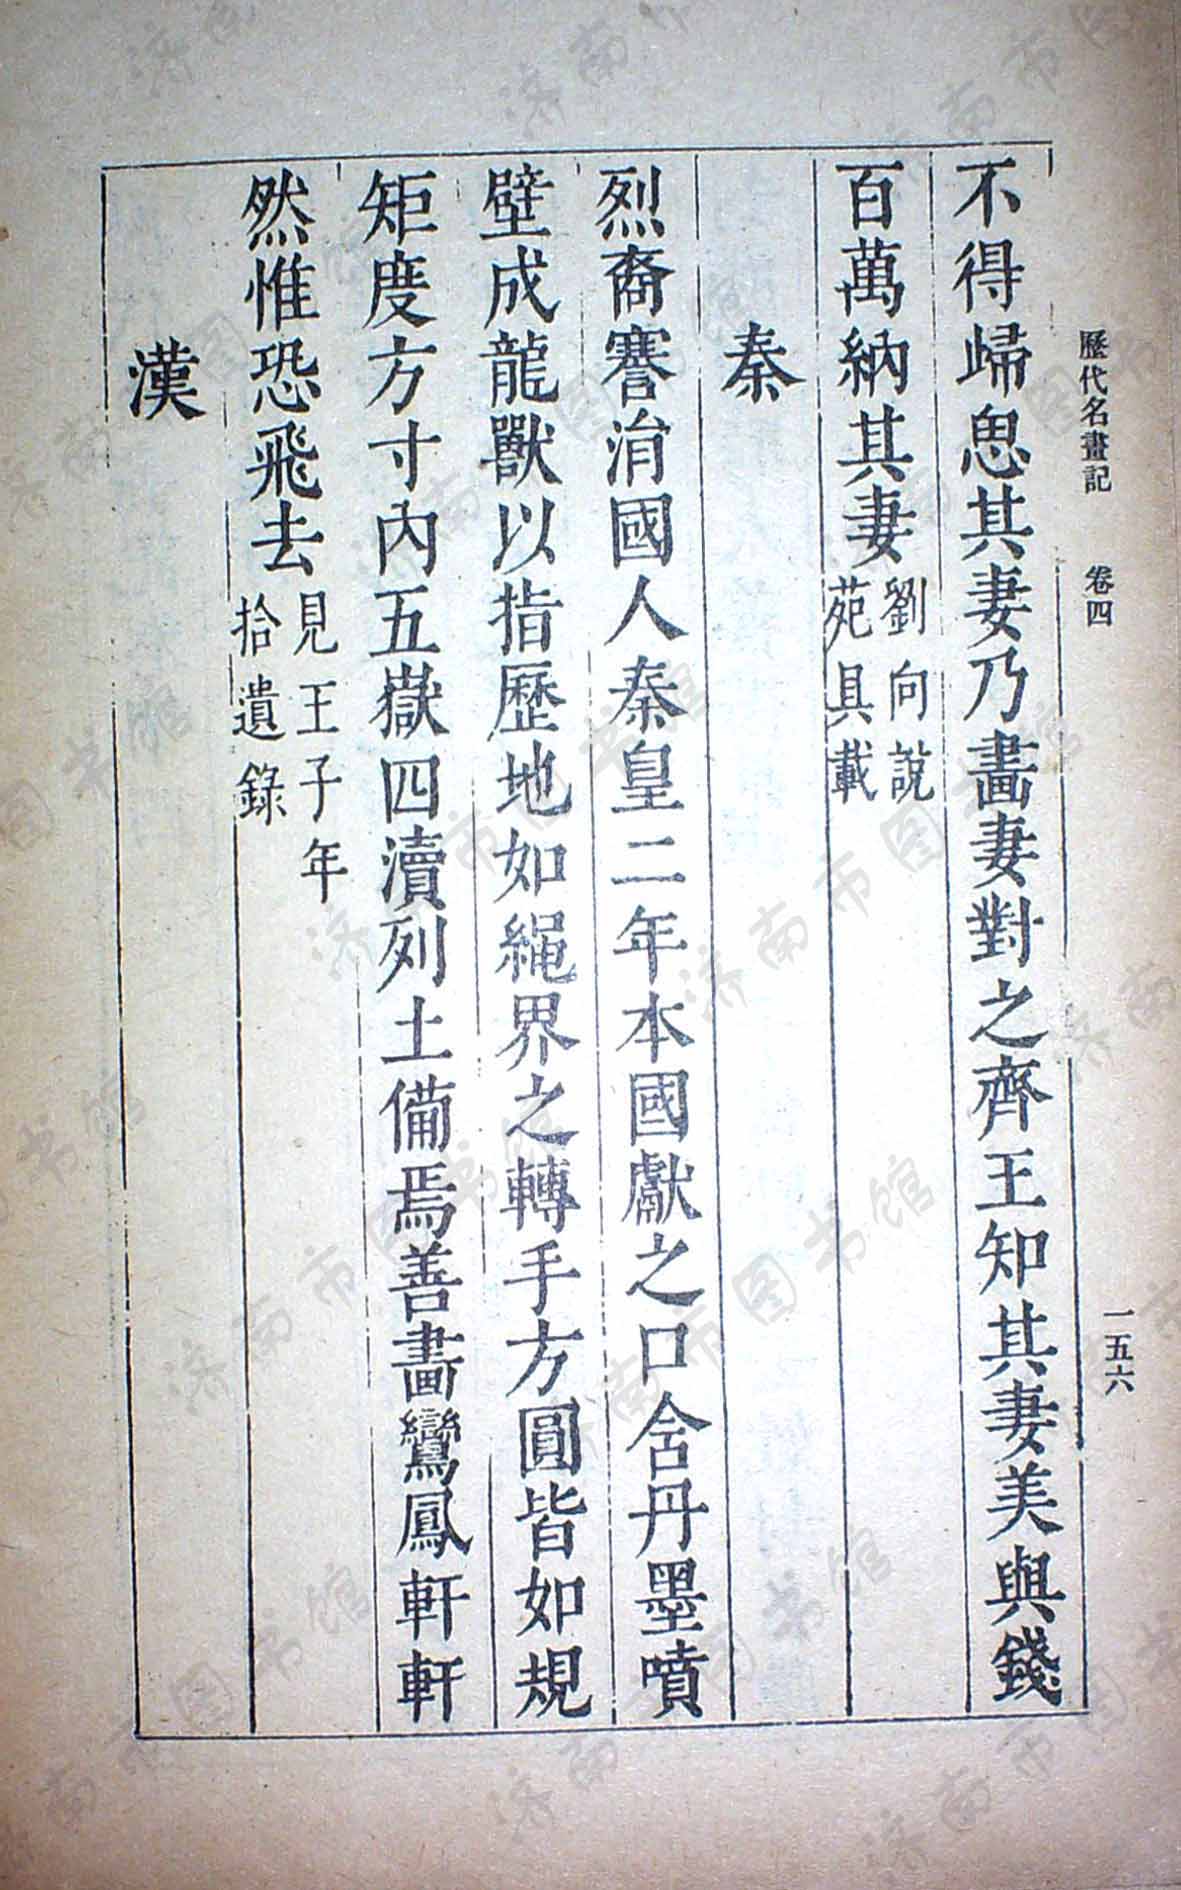 歷代名畫記　卷四　一五六
不得歸思其妻乃畵妻對之齊王知其妻美與錢
百萬納其妻劉向說
苑具載
秦
烈裔謇涓國人秦皇二年本國獻之口含丹墨噴
壁成龍獸以指歷地如繩界之轉手方圓皆如規
矩度方寸內五嶽四瀆列土備焉善畵鸞鳳軒軒
然惟恐飛去見王子年
拾遺錄
漢
济南市图书馆